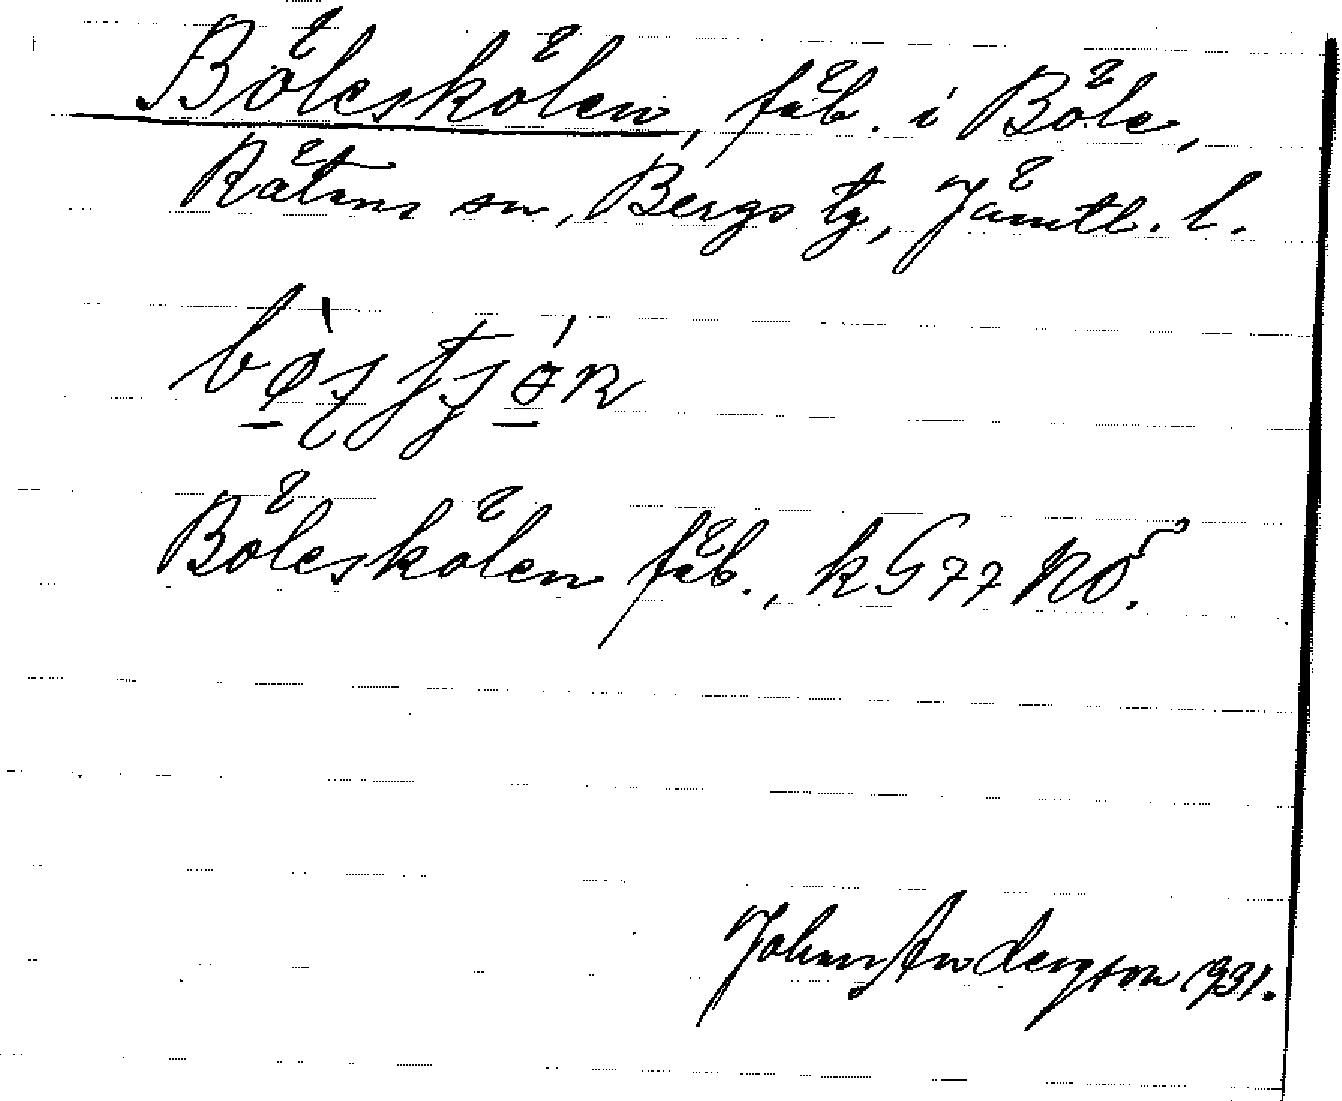 Böleskölen, fäb. i Böle,
Rätans sn, Bergs tg, Jämtl. l.
Böleskölen fäb., k G 77 NO.
Johan Anderson 1931.